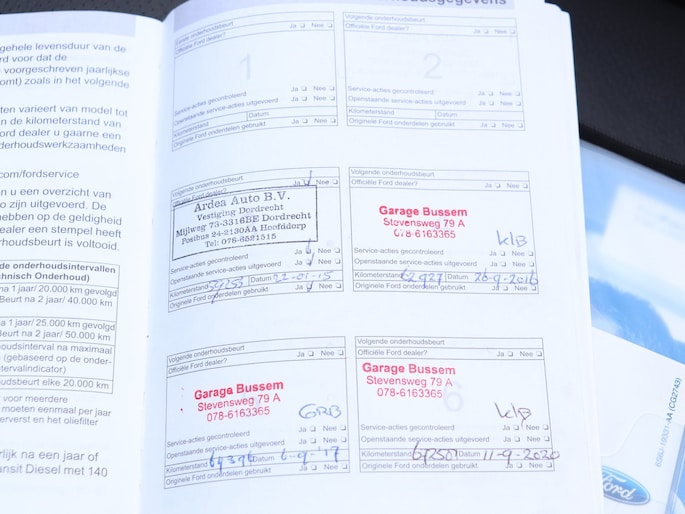 gehele levensduur van de
rd voor dat de
voorgeschreven jaarlijkse
omt) zoals in het volgende
ten varieert van model tot
n de kilometerstand van
ord dealer u gaarne een
derhoudswerkzaamheden
com/fordservice
n u een overzicht van
o zijn uitgevoerd. De
hebben op de geldigheid
ealer een stempel heeft
rhoudsbeurt is voltooid.
de onderhoudsintervallen
chnisch Onderhoud)
na 1 jaar/ 20.000 km gevolgd
Beurt na 2 jaar/ 40.000
km
na 1 jaar/ 25.000 km gevolgd
Beurt na 2 jaar/ 50.000 km
houdsinterval na maximaal
(gebaseerd op de onder-
tervalindicator)
udsbeurt elke 20.000 km
voor meerdere
moeten eenmaal per jaar
rververst en het oliefilter
rlijk na een jaar of
ansit Diesel met 140
houdsgegevens
gende onderhoudsbeurt
Officiële Ford dealer?
Ja Nee
1
Service-acties gecontroleerd
Ja Nee
Openstaande service-acties uitgevoerd
Ja Nee
Kilometerstand Datum
Originele Ford onderdelen gebruikt
Ja Nee
Volgende onderhoudsbeurt
Officiële Ford dealer?
Ja Nee
2
Service-acties gecontroleerd
Ja Nee
Openstaande service-acties uitgevoerd
Ja Nee
Kilometerstand Datum
Originele Ford onderdelen gebruikt
Ja Nee
Volgende onderhoudsbeurt
Officiële Ford dealer?
Ja Nee
Ardea Auto B.V.
Vestiging Dordrecht
Mijlweg 73-3316BE Dordrecht
Postbus 24-2130AA Hoofddorp
Tel: 078-6521515
Service-acties gecontroleerd
Ja Nee
Openstaande service-acties uitgevoerd
Ja Nee
Kilometerstand Datum
Originele Ford onderdelen gebruikt
Ja Nee
Volgende onderhoudsbeurt
Officiële Ford dealer?
Ja Nee
Garage Bussem
Stevensweg 79 A
078-6163365
klB
Service-acties gecontroleerd
Ja Nee
Openstaande service-acties uitgevoerd
Ja Nee
Kilometerstand 62927 Datum 26-9-2016
Originele Ford onderdelen gebruikt
Ja Nee
Volgende onderhoudsbeurt
Officiële Ford dealer?
Ja Nee
Garage Bussem
Stevensweg 79 A
078-6163365
GRB
Service-acties gecontroleerd
Ja Nee
Openstaande service-acties uitgevoerd
Ja Nee
Kilometerstand 64396 Datum 6-9-'17
Originele Ford onderdelen gebruikt
Ja Nee
Volgende onderhoudsbeurt
Officiële Ford dealer?
Ja Nee
Garage Bussem
Stevensweg 79 A
078-6163365
6
klB
Service-acties gecontroleerd
Ja Nee
Openstaande service-acties uitgevoerd
Ja Nee
Kilometerstand 67250 Datum 11-9-2020
Originele Ford onderdelen gebruikt
Ja Nee
(CG2743)
Ford